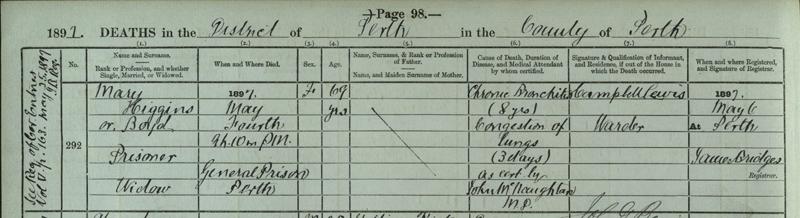 Page 98.—
1897. DEATHS in the District of Perth in the County of Perth
(1.) (2.) (3.) (4.) (5.) (6.) (7.) (8.)
No.
Name and Surname.
Rank or Profession, and whether Single, Married, or Widowed.
When and Where Died.
Sex.
Age.
Name, Surname, & Rank or Profession of Father.
Name, and Maiden Surname of Mother.
Cause of Death, Duration of Disease, and Medical Attendant by whom certified.
Signature & Qualification of Informant, and Residence, if out of the House in which the Death occurred.
When and where Registered, and Signature of Registrar.
See Reg. of Cor. Entries
Vol. V. p. 163. May 25, 1897
292
Mary
Higgins
or Boyd
Prisoner
Widow
1897.
May
Fourth
9h. 10m P.M.
General Prison
Perth
F.
69
yrs
Chronic Bronchitis
(8 yrs)
Congestion of
lungs
(3 days)
as cert by
John McNaughtan
M.D.
Campbell Lewis
Warder
1897.
May 6
At Perth
James Bridges
Registrar.